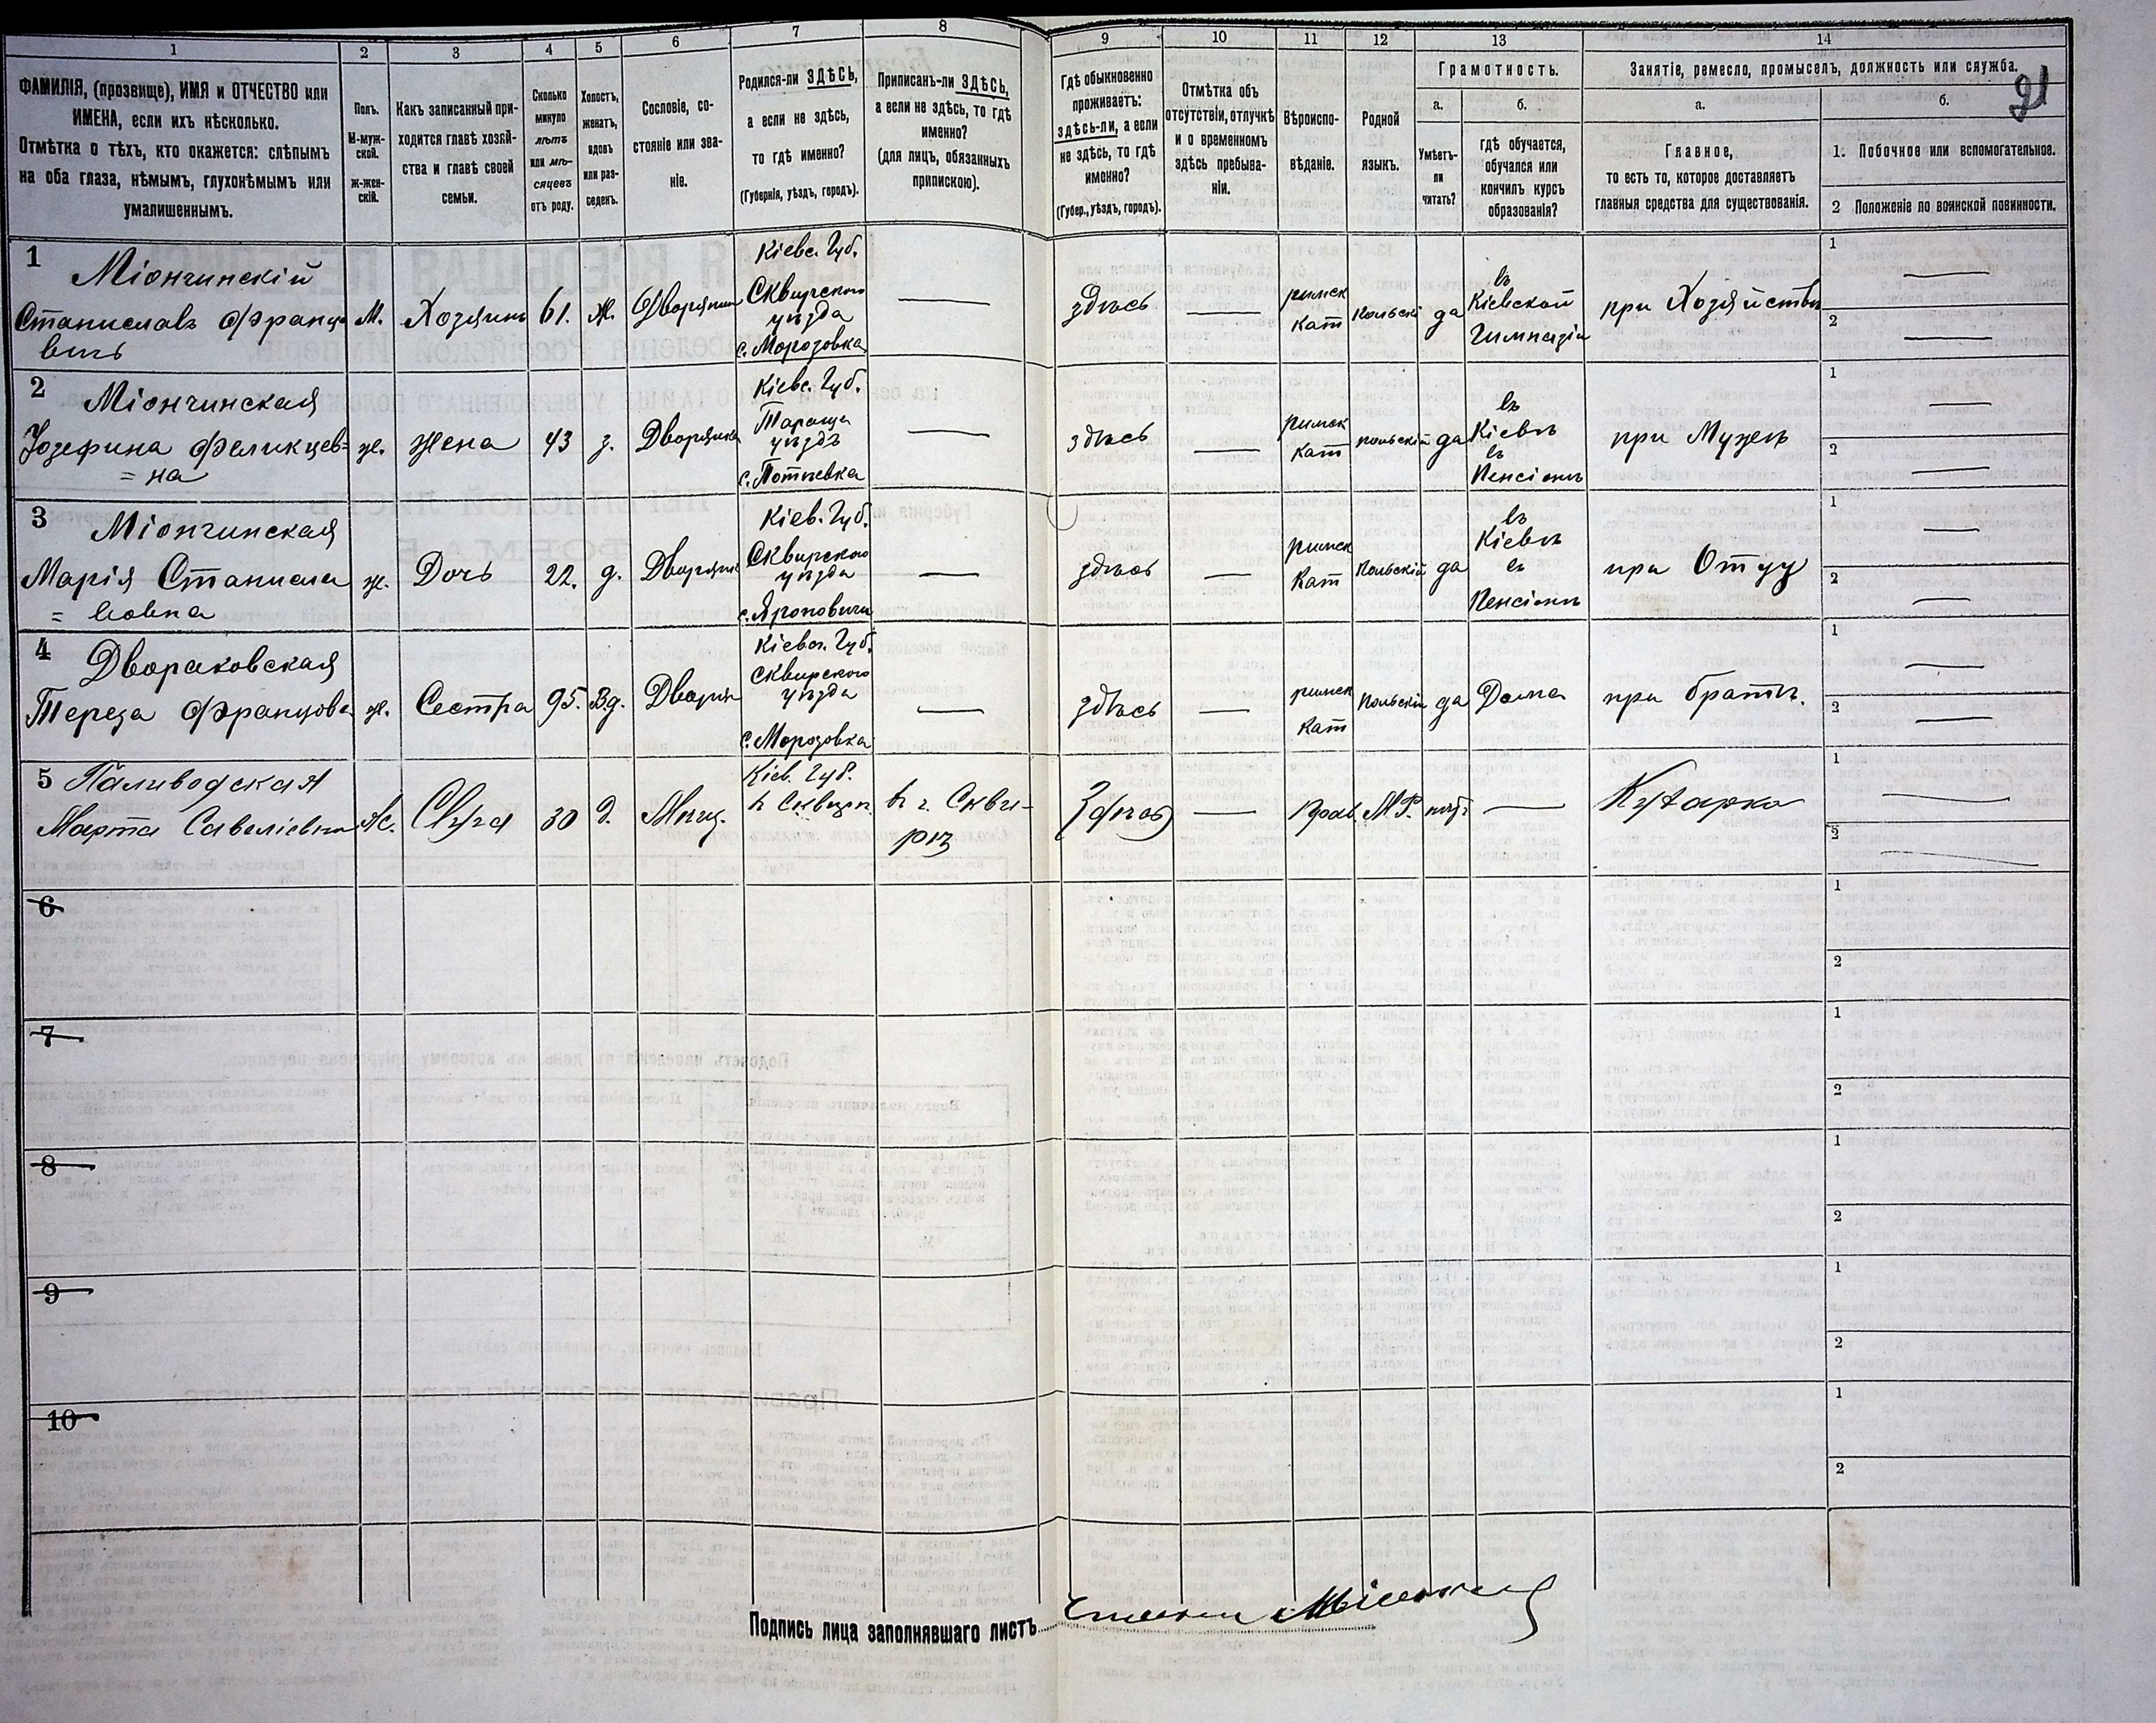 1 2 3 4 5 6 7 8 9 10 11 12 13 14
ФАМИЛІЯ, (прозвище), ИМЯ и ОТЧЕСТВО или
ИМЕНА, если ихъ нѣсколько.
Отмѣтка о тѣхъ, кто окажется: слѣпымъ
на оба глаза, нѣмымъ, глухонѣмымъ или
умалишеннымъ.
Полъ.
М-муж-
ской.
ж-жен-
скій.
Какъ записанный при-
ходится главѣ хозяй-
ства и главѣ своей
семьи.
Сколько
минуло
лѣтъ
или мѣ-
сяцевъ
отъ роду.
Холостъ,
женатъ,
вдовъ
или раз-
веденъ.
Сословіе, со-
стояніе или зва-
ніе.
Родился-ли ЗДѢСЬ,
а если не здѣсь,
то гдѣ именно?
(Губернія, уѣздъ, городъ).
Приписанъ-ли ЗДѢСЬ,
а если не здѣсь, то гдѣ
именно?
(для лицъ, обязанныхъ
припискою).
Гдѣ обыкновенно
проживаетъ:
здѣсь-ли, а если
не здѣсь, то гдѣ
именно?
(Губер., уѣздъ, городъ).
Отмѣтка объ
отсутствіи, отлучкѣ
и о временномъ
здѣсь пребыва-
ніи.
Вѣроиспо-
вѣданіе.
Родной
языкъ.
Грамотность.
а.
Умѣетъ-
ли
читать?
б.
гдѣ обучается,
обучался или
кончилъ курсъ
образованія?
Занятіе, ремесло, промыселъ, должность или служба.
21
а.
Главное,
то есть то, которое доставляетъ
главныя средства для существованія.
б.
1. Побочное или вспомогательное.
2 Положеніе по воинской повинности.
1
Міончинскій
Станиславъ Францо
вичъ
М.
Хозяинъ
61.
Ж.
Дворянин
Кіевс. Губ.
Сквирского
уѣзда
с. Морозовка
здѣсь
римск
кат
польскі
да
въ
Кіевской
Гимназіи
при Хозяйствѣ
1
2
2
Міончинская
Юзефина Феликцев=
=на
ж.
Жена
43
з.
Дворянка
Кіевс. Губ.
Тараща
уѣздъ
с. Потіевка
здѣсь
римск
кат
польскій
да
въ
Кіевѣ
въ
Пенсіонѣ
при Мужѣ
1
2
3
Міончинская
Марія Станисла
=вовна
ж.
Дочь
22.
д.
Дворянк
Кіев. Губ.
Сквирского
уѣзда
с. Яроповичи
здѣсь
римск
Кат
Польскій
да
въ
Кіевѣ
въ
Пенсіонѣ
при Отцу
1
2
4
Двораковская
Тереза Францова
ж.
Сестра
95.
Вд.
Дворян
Кіевс. Губ.
Сквирского
уѣзда
с. Морозовка
здѣсь
римск
Кат
Польскій
да
Дома
при братѣ.
1
2
5 Паливодская
Марта Савеліевна
Ж.
Слуга
30
д.
Мѣщ.
Кіев. Губ.
в Сквирѣ
в г. Скви-
рѣ
Здѣсь
Прав.
М. Р.
нѣтъ
Кухарка
1
2
6
1
2
7
1
2
8
1
2
9
1
2
10
1
2
Подпись лица заполнявшаго листъ